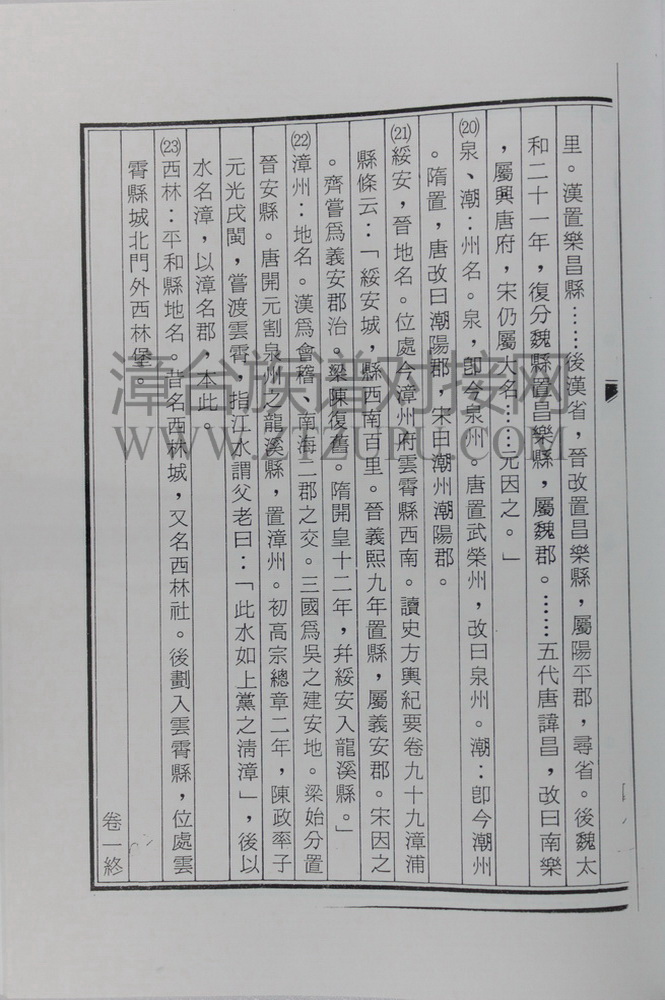 里。漢置樂昌縣……後漢省，晉改置昌樂縣，屬陽平郡，尋省。後魏太
和二十一年，復分魏縣置昌樂縣，屬魏郡。……五代唐諱昌，改曰南樂
，屬興唐府，宋仍屬大名……元因之。」
⒇泉、潮：州名。泉，卽今泉州。唐置武榮州，改曰泉州。潮：卽今潮州
。隋置，唐改曰潮陽郡，宋曰潮州潮陽郡。
(21)綏安，晉地名。位處今漳州府雲霄縣西南。讀史方輿紀要卷九十九漳浦
縣條云：「綏安城，縣西南百里。晉義熙九年置縣，屬義安郡。宋因之
。齊嘗爲義安郡治。梁陳復舊。隋開皇十二年，幷綏安入龍溪縣。」
(22)漳州：地名。漢爲會稽、南海二郡之交。三國爲吳之建安地。梁始分置
晉安縣。唐開元割泉州之龍溪縣，置漳州。初高宗總章二年，陳政率子
元光戍閩，嘗渡雲霄，指江水謂父老曰：「此水如上黨之淸漳」，後以
水名漳，以漳名郡，本此。
(23)西林：平和縣地名。昔名西林城，又名西林社。後劃入雲霄縣，位處雲
霄縣城北門外西林堡。
卷一終
漳台族谱对接网
WWW.ZTZUPU.COM